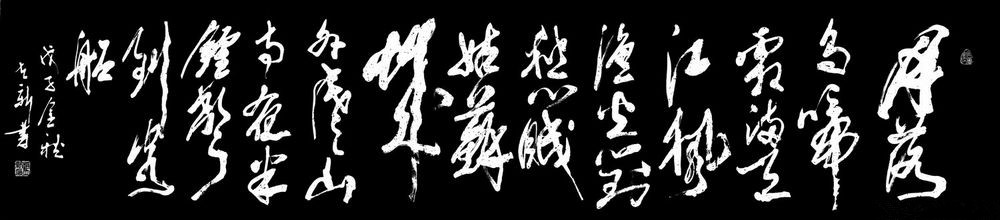 月落
乌啼
霜满天
江枫
渔火对
愁心眠
姑苏
城
外寒山
寺夜半
钟声
到客
船